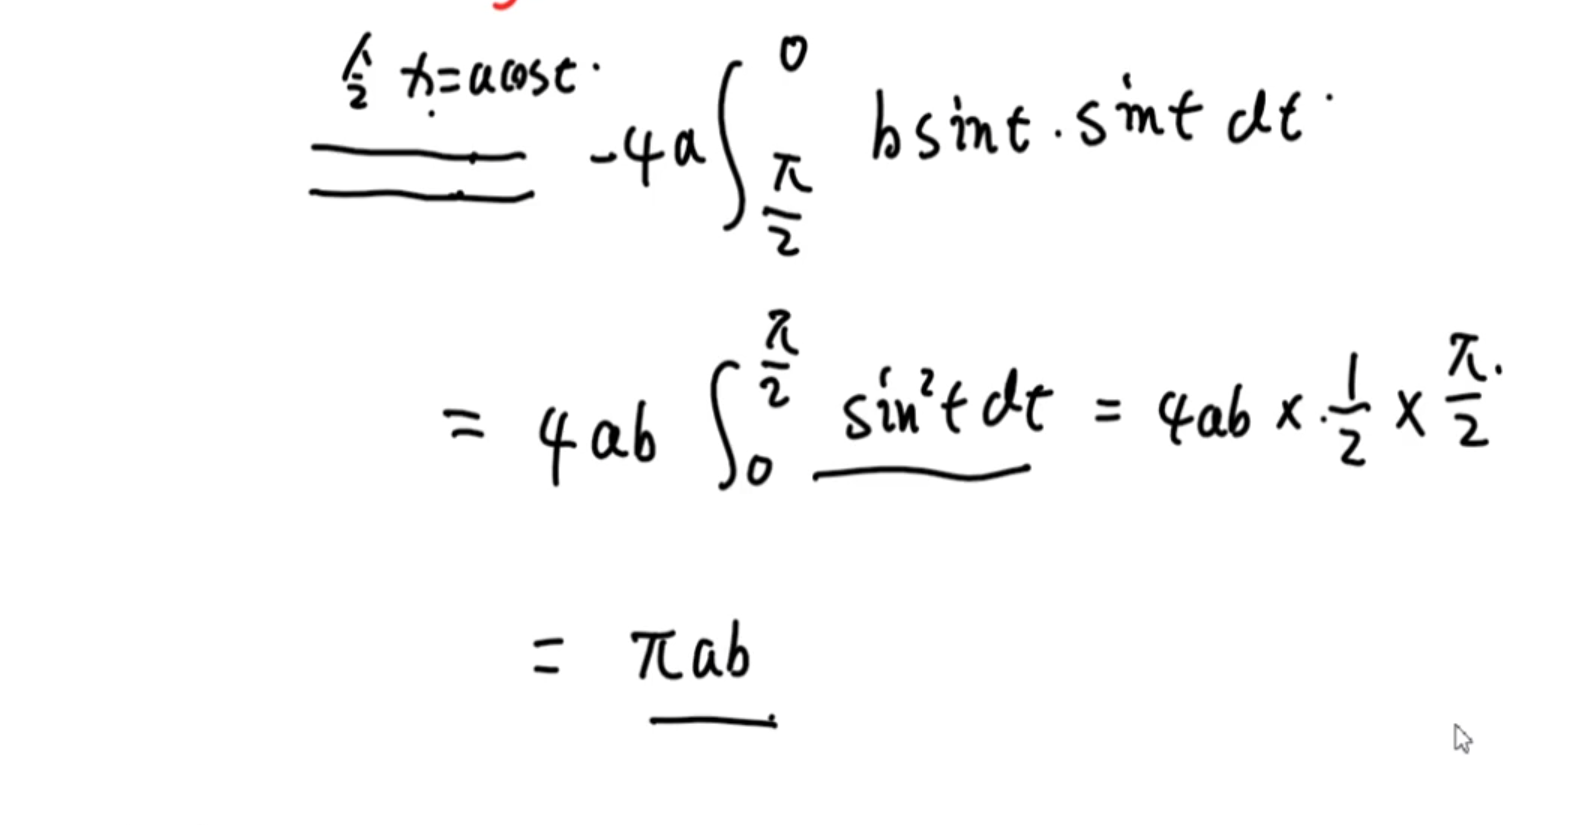 令 x=acost
-4a∫_{π/2}^{0} bsint·sint dt
= 4ab ∫_{0}^{π/2} sin²t dt = 4ab × 1/2 × π/2
= πab